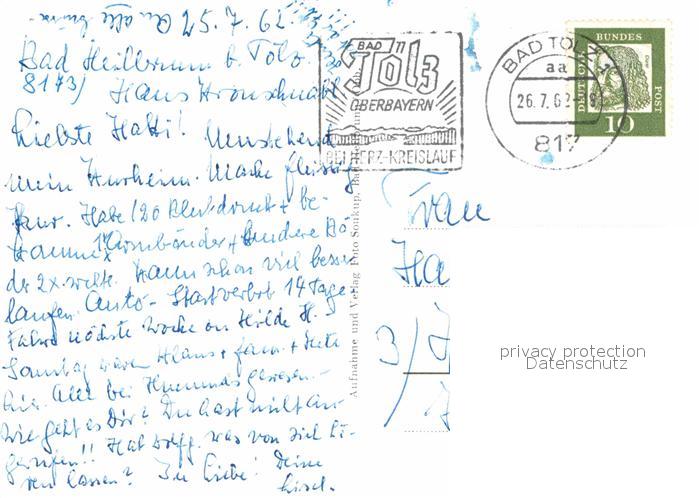 25.7.62
Bad Heilbrunn b. Tölz
8173) Haus Kronschnabl
Liebste Hatti! Umstehend
mein Kurheim. Mache fleissig
Kur. Habe 120 Blutdruck + be-
komme 1x Armbänder + andere Bä
der 2x wöchtl. Kann schon viel besser
laufen. Auto- Startverbot 14 Tage.
Fahre nächste Woche an Hilde H.
Sonntag waren Klaus + fam. +
hier. Alle bei gewesen.
Wie geht es Dir? Du hast nicht an-
gerufen!! Hat Wolfg. was von sich hö-
ren lassen? In Liebe! Deine
Liesel.
BAD
Tölz
OBERBAYERN
BEI HERZ-KREISLAUF
BAD TÖLZ 1
aa
26.7.62-8
817
DEUTSCHE BUNDESPOST
Dürer
10
Aufnahme und Verlag Foto Soukup, Bad
Frau
Ha
privacy protection
Datenschutz